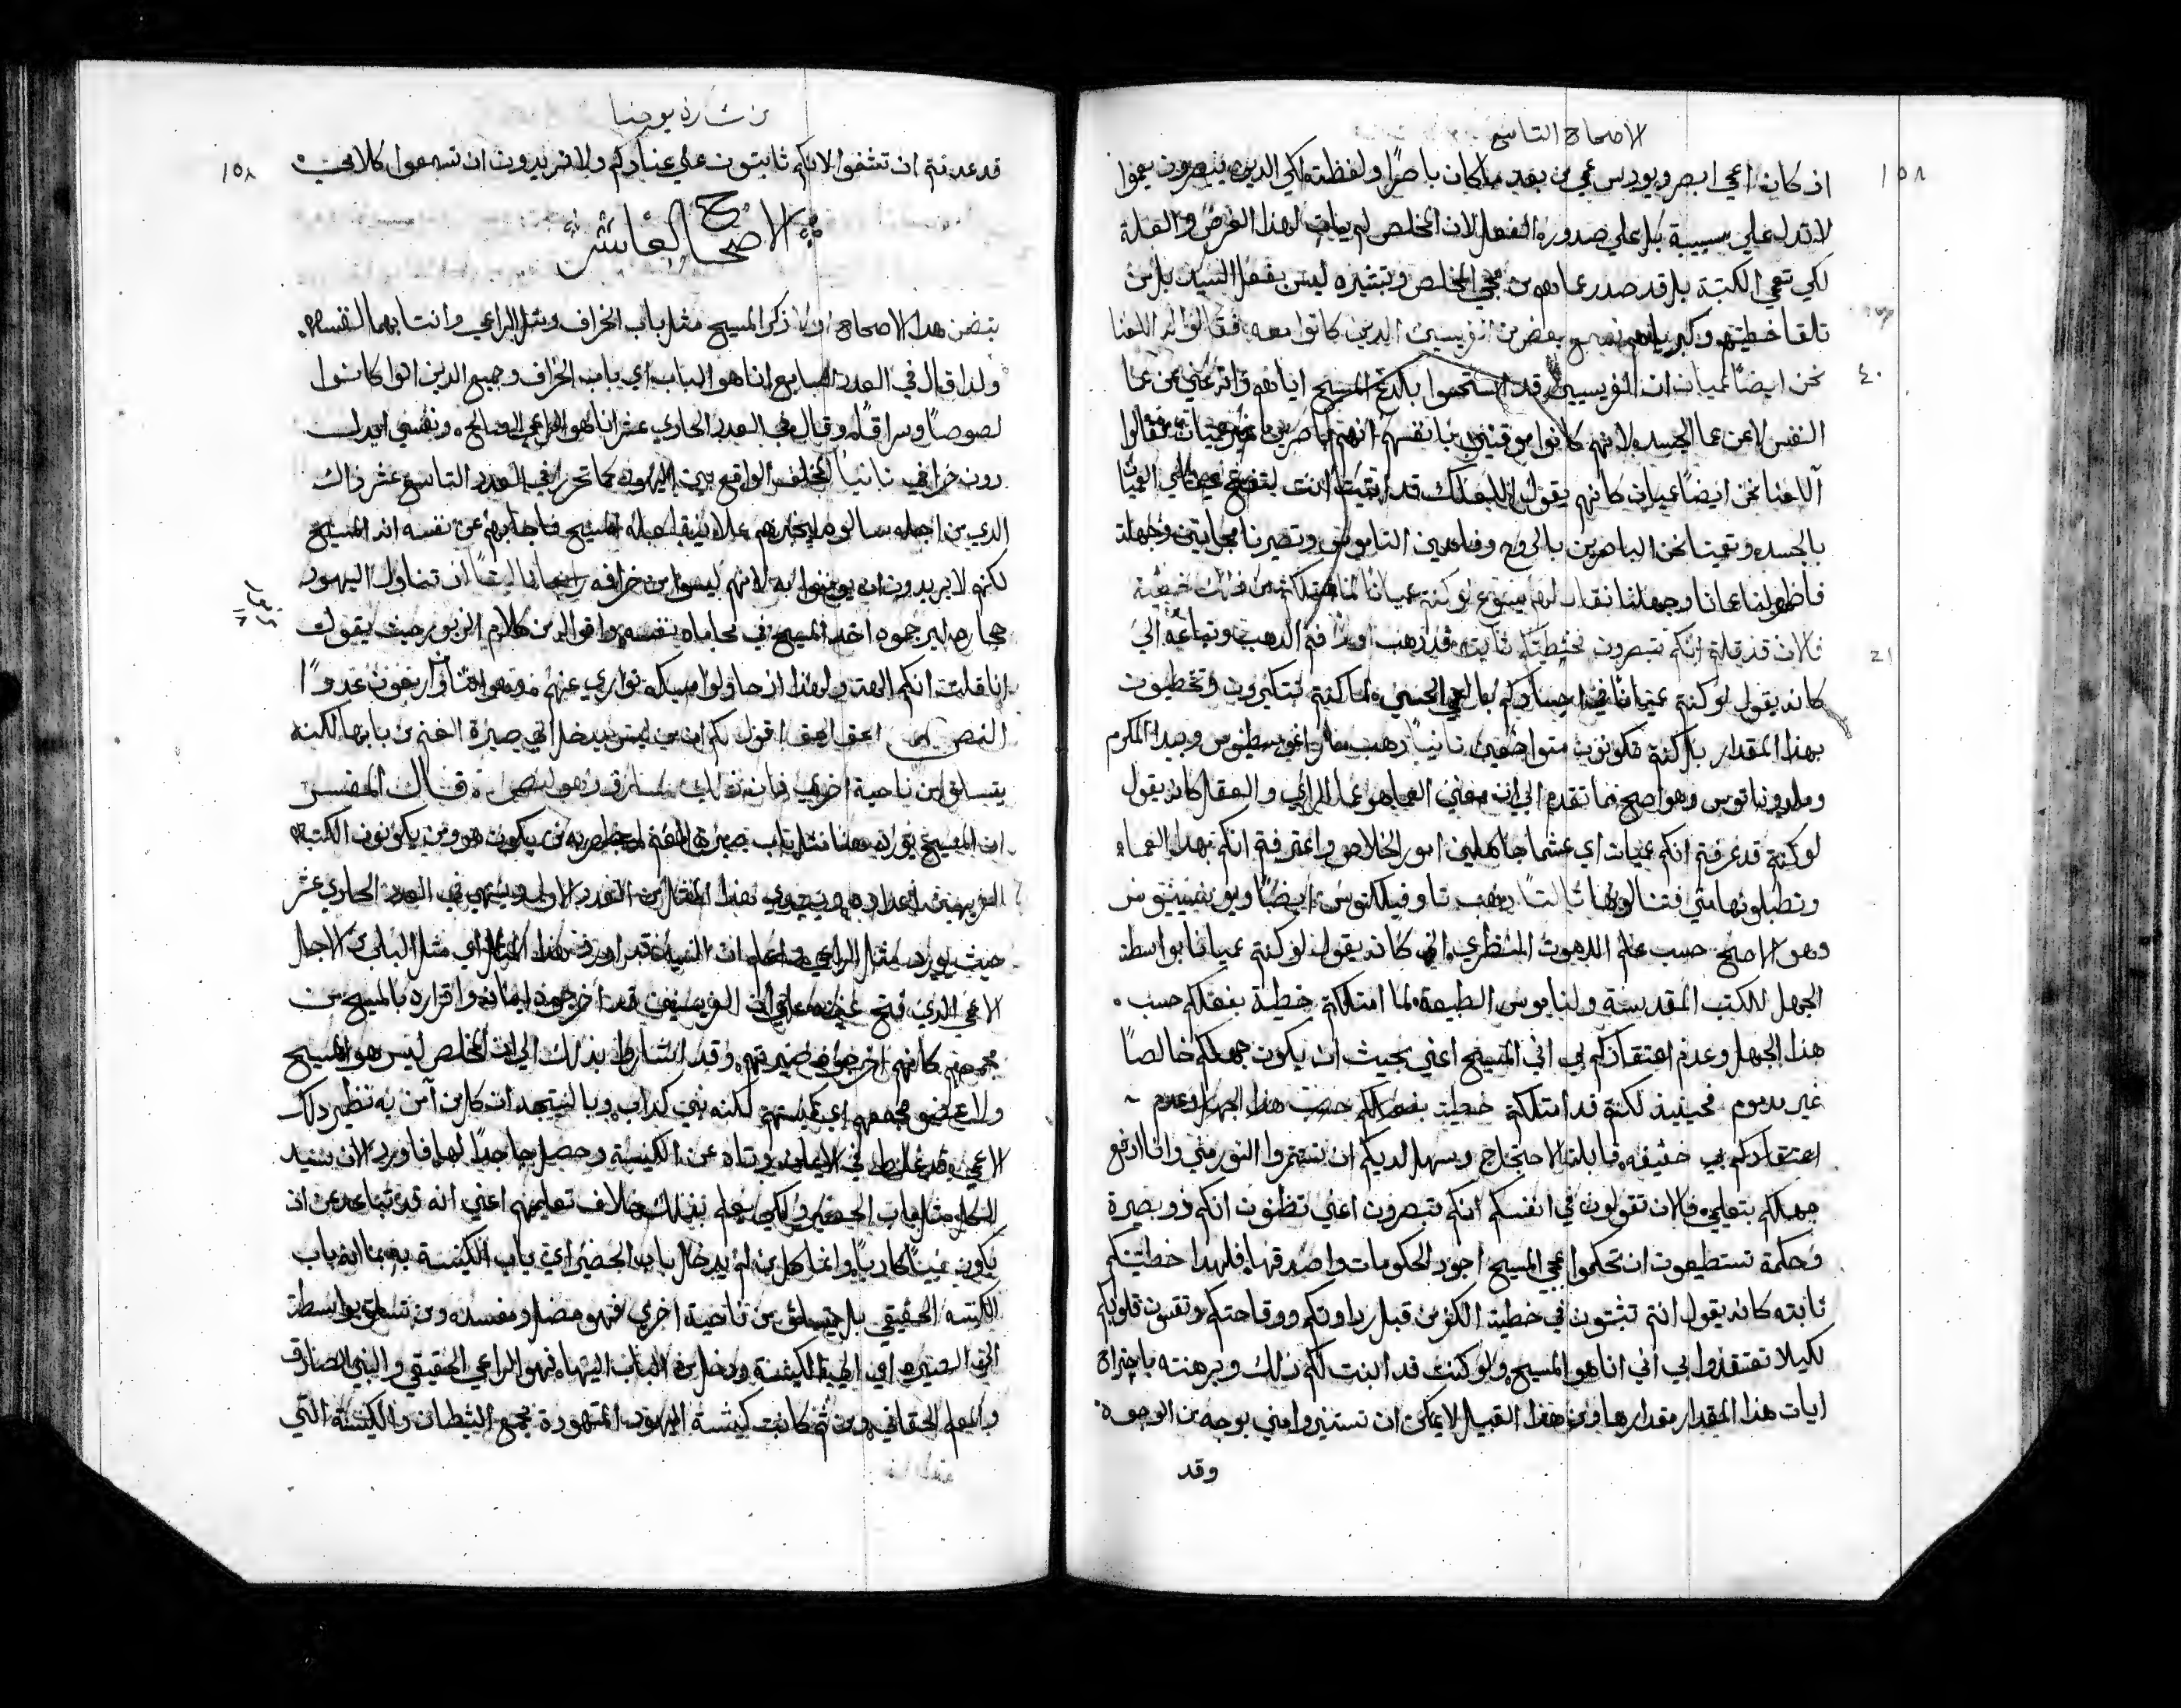 الاصحاح التاسع
١٥٨
ان كان اعمي ابصر ويودس عمي من بعد ما كان باصرًا ولفظة لكي الدين يبصرون يعموا
لا تدل علي سببية بل علي صدور الفعل لان المخلص لم يات لهذا الغرض والعلة
لكي تعمي الكتبة بل قد صدر عماهم من مجي المخلص وتبشيره ليس بفعل السيد بل من
تلقا خطيتهم وكبرياهم فسمع بعض من الفريسيين الدين كانوا معه فقالوا له العلنا
٤٠
نحن ايضًا عميان ان الفريسيين قد استحموا بلدغ المسيح اياهم وانه عني عن عما
النفس لا عن عما الجسد لانهم كانوا موقنين بانفسهم انهم باصرين غير عميان فقالوا
ألعلنا نحن ايضًا عميان كانهم يقول لعلك قد اتيت انت لتفتح عيني العميان
بالجسد وتعمينا نحن الباصرين بالروح وفاهمين الناموس وتصيرنا مجانين وجهلة
فاظهر لنا عمانا وجهلنا فقال لهم يسوع لو كنتم عميانًا لما كانت لكم خطية
٤١
فالان قد قلتم انكم تبصرون فخطيتكم ثابتة فقد دهب اولًا فم الدهب وتباعه الي
كانه يقول لو كنتم عميانًا في اجسادكم بالعمي الحسي لما كنتم تتكبرون وتخطيون
بهذا المقدار بل كنتم تكونون متواضعين ثانيًا دهب مار اغوسطينوس وبيدا المكرم
وملدوناتوس وهو اصح مما تقدم الي ان معني العما هو عما الراي والعقل كانه يقول
لو كنتم قد عرفتم انكم عميان اي غشما جاهلين امور الخلاص واعترفتم انكم بهذا العماء
وتطلبون دوايها مني فتنالوها ثالثًا دهب تاوفيلكتوس ايضًا وبونفنتيوس
وهو الاصح حسب علم اللاهوت النظري اني كانه يقول لو كنتم عميانا بواسطة
الجهل للكتب المقدسة ولناموس الطبيعة لما امتلكتم خطية بفعلكم حسب
هذا الجهل وعدم اعتقادكم بي اني المسيح اعني بحيث ان يكون جهلكم خالصًا
غير مدموم فحينيذ لكنتم قد امتلكتم خطية بفعلكم حسب هذا الجهل وعدم
اعتقادكم بي خفيفة قابلة الاحتجاج وسهل لديكم ان تستمروا النور مني وانا ادفع
جهلكم بتعليمي فالان تقولون في انفسكم انكم تبصرون اعني تظنون انكم دوو بصيرة
وحكمة تستطيعون ان تحكموا علي المسيح اجود الحكومات واصدقها فلهدا خطيتكم
ثابته كانه يقول انتم تثبتون في خطية الكفر من قبل رداوتكم ووقاحتكم وتقسون قلوبكم
لكيلا تعتقدوا بي اني انا هو المسيح ولو كنت قد ابنت لكم ذلك وبرهنته باجتراح
ايات هذا المقدار مقدارها ومن هذا القبيل لا يمكن ان تستنيروا مني بوجه من الوجوه
وقد
من بشارة يوحنا
١٥٨
قد عدمتم ان تشفوا لانكم ثابتون علي عنادكم ولا تريدون ان تسمعوا كلامي
الاصحاح العاشر
يتضمن هدا الاصحاح اولًا ذكر المسيح مثل باب الخراف ومثل الراعي وانتسابهما لنفسه
ولدا قال في العدد السابع انا هو الباب اي باب الخراف وجميع الدين اتوا كانوا
لصوصًا وسراقًا وقال في العدد الحادي عشر انا هو الراعي الصالح ونفسي ابدل
دون خرافي ثانيًا الخلف الواقع بين اليهود كما تحرر في العدد التاسع عشر ذاك
الدي من اجله سالوه ليخبرهم علانية هل هو المسيح فاجابهم عن نفسه انه المسيح
لكنهم لا يريدون ان يومنوا به لانهم ليسوا من خرافه ثالثًا ان تناول اليهود
حجارة ليرجموه اخد المسيح في محاماة نفسه واقواله من كلام الزبور حيث يقول
انا قلت انكم الهة ولهذا اذ حاولوا مسكه تواري عنهم وهو اثنان واربعون عددًا
النص الحق الحق اقول لكم ان من ليس يدخل الي صيرة الغنم من بابها لكنه
يتسلق من ناحية اخري فان ذلك سارق وهو لص قال المفسر
ان المسيح يورد هنا مثل باب صيرة الغنم ليظهر به من يكون هو ومن يكونون الكتبة
الفريسيين اعداوه ويحوي هذا المثل من العدد الاول وينتهي في العدد الحادي عشر
حيث يورد مثل الراعي واعلم ان السيد قد اورد هذا المثل اي مثل الباب لاجل
الاعمي الذي فتح عينيه علي ان الفريسيين قد اخرجوه لايمانه واقراره بالمسيح من
مجمعهم كانهم اخرجوه من صيرتهم وقد اشاروا بذلك الي ان المخلص ليس هو المسيح
ولا عضو مجمعهم اي كنيستهم لكنه نبي كداب وبالنتيجه ان كل من آمن به نظير ذلك
الاعمي قد غلط في الايمان وتاه عن الكنيسة وحصل جاحدًا لها فاورد الان سيد
الكل مثل باب الحظيرة لكي يعلم بذلك خلاف تعليمهم اعني انه قد تباعد عن ان
يكون نبيًا كادبًا وانما كل من لم يدخل باب الحضير اي باب الكنيسة به بما انه باب
الكنيسه الحقيقي بل يتسلق من ناحية اخري فهو مضل ومفسد ومن تسلق بواسطة
الي الصيره اي الي الكنيسة ودخل من الباب اليها فهو الراعي الحقيقي والنبي الصادق
والمعلم الحقاني ومن ثم كانت كنيسة اليهود المتهودة مجمع الشيطان والكنيسة التي